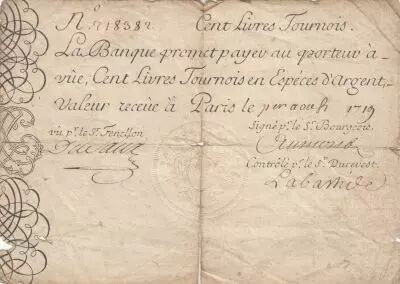 N.° 718382 Cent Livres Tournois.
La Banque promet payer au porteur à
vüe, Cent Livres Tournois en Espéces d'Argent,
Valeur receüe à Paris le p.er aoust 1719
vu p.r le S.r Fenellon
Signé p.r le S.r Bourgeois.
Durevest
Controllé p.r le S.r Durevest.
Labastide